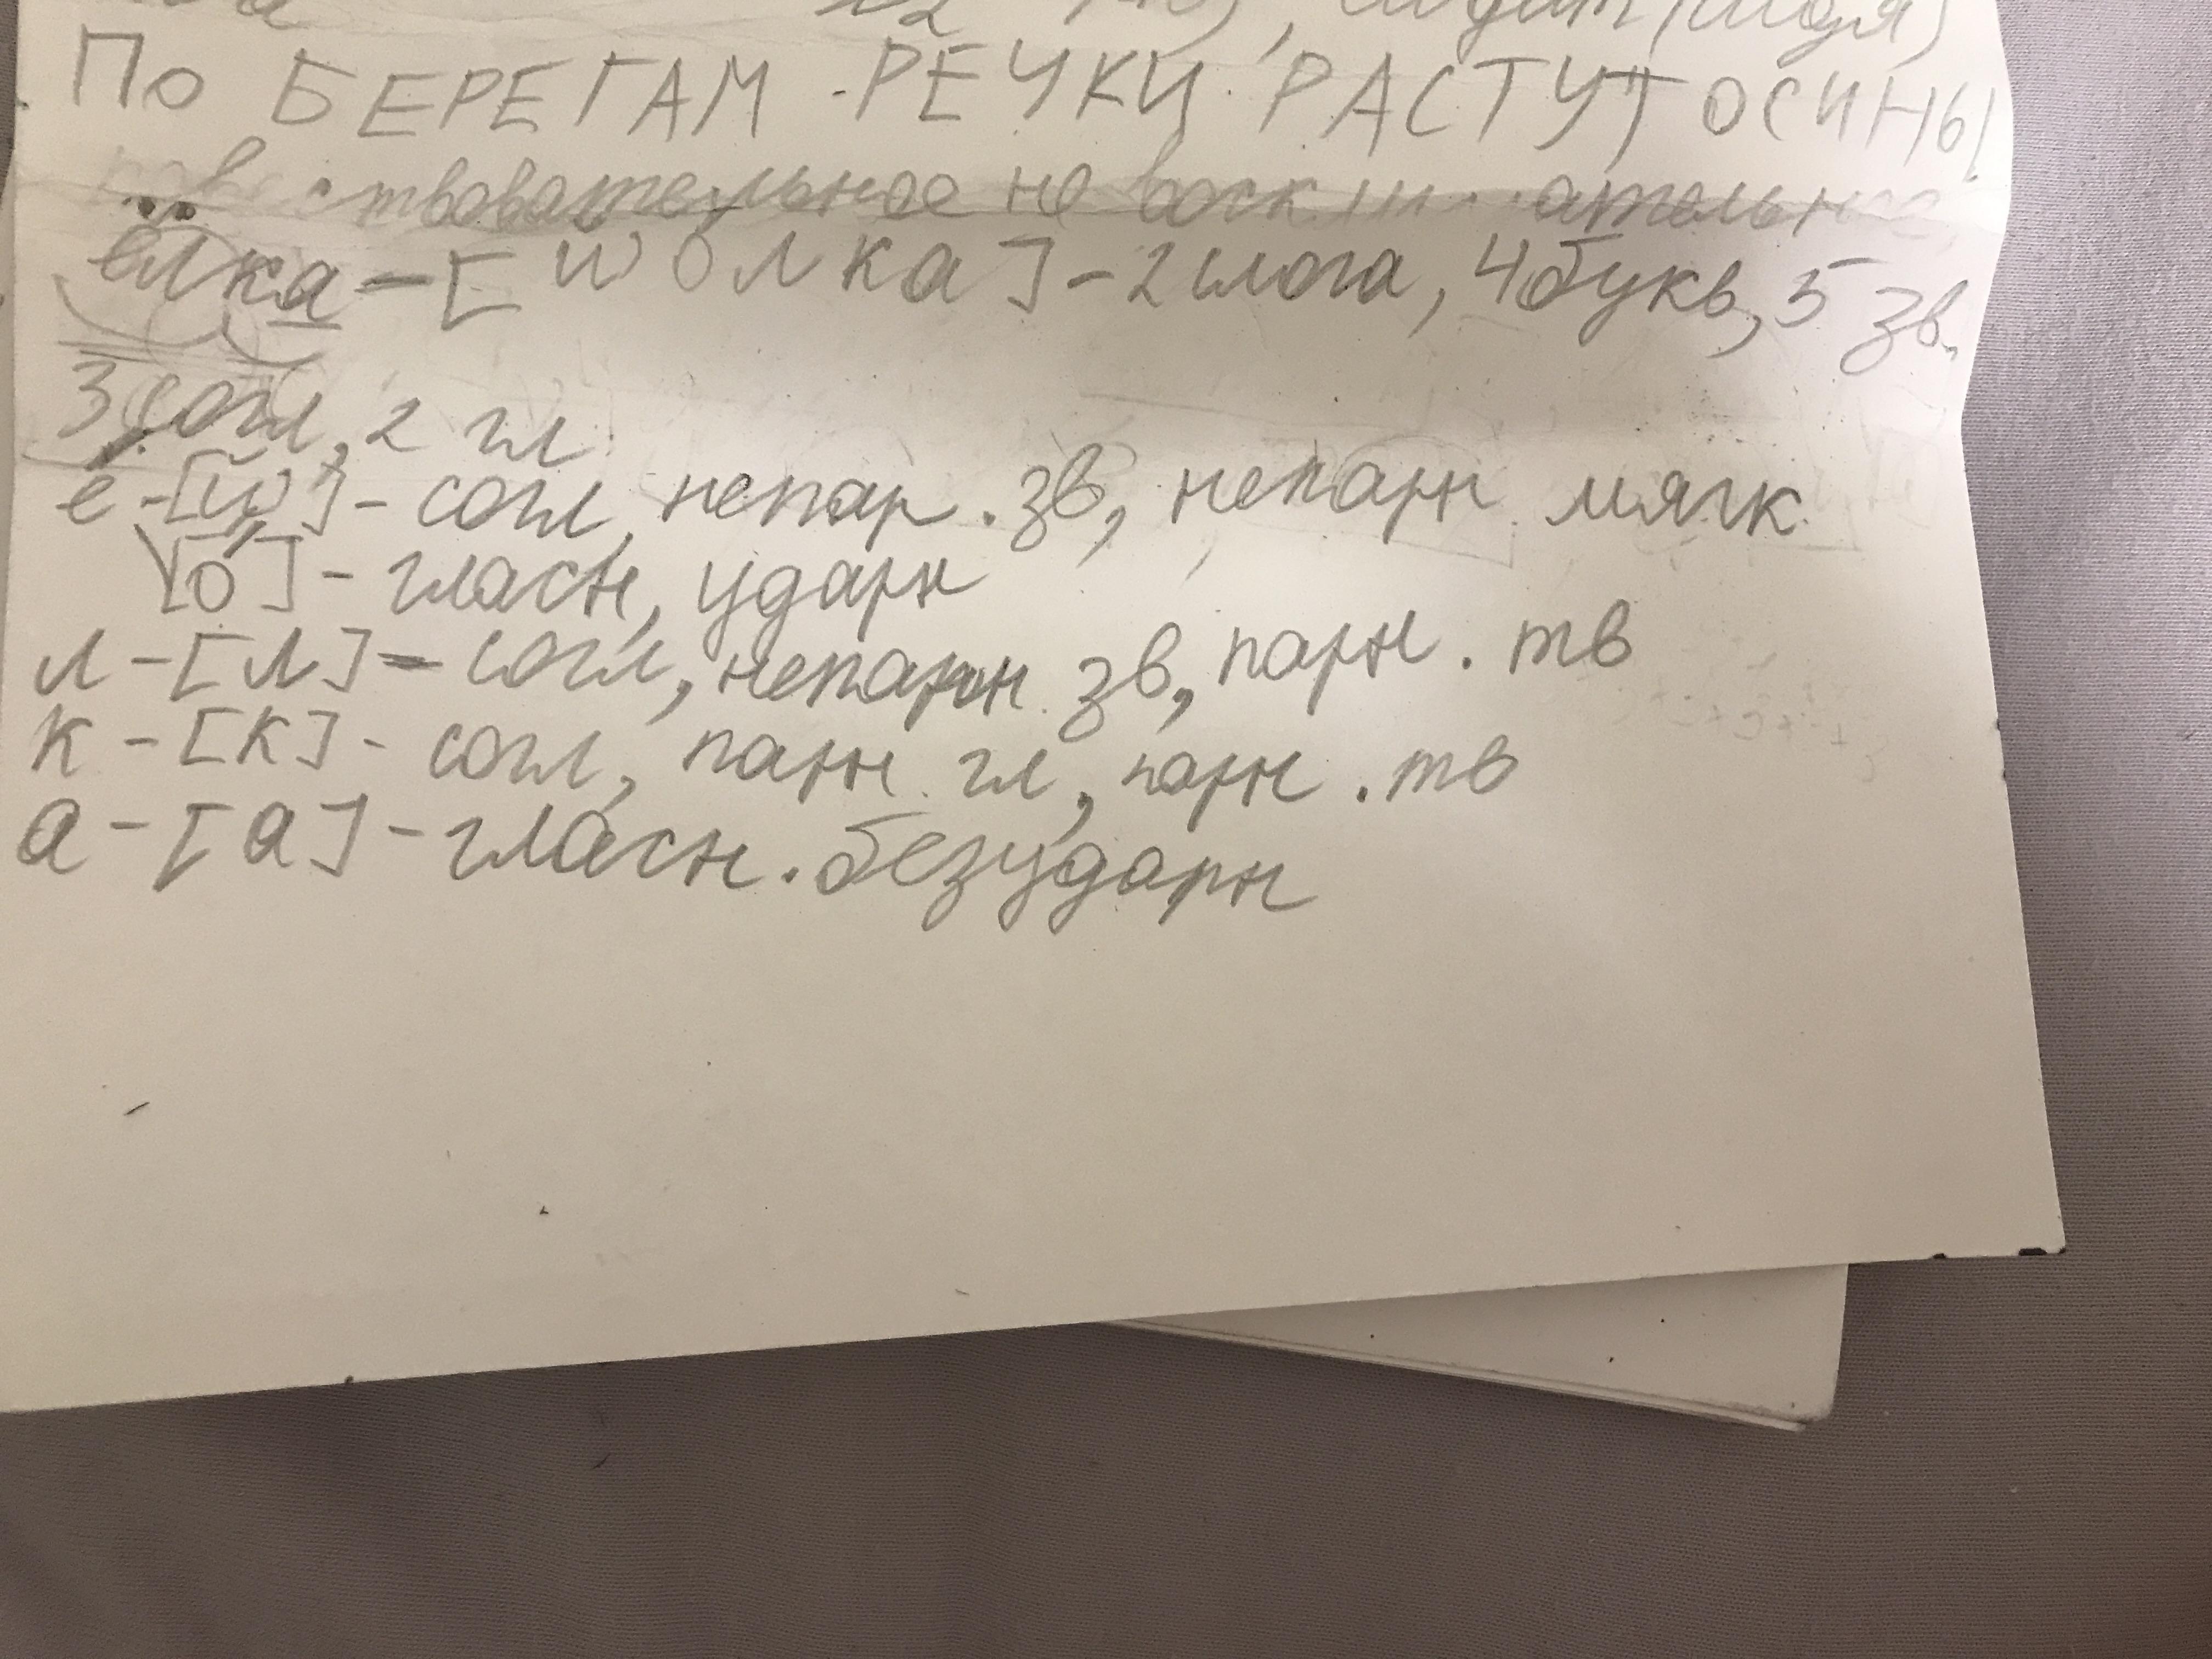 По БЕРЕГАМ РЕЧКИ РАСТУТ ОСИНЫ
не
ёлка - [йолка] - 2 слога, 4 букв, 5 зв.
3 согл, 2 гл
ё - [й'] - согл, непар. зв, непарн мягк
[о́] - гласн, ударн
л - [л] - согл, непарн зв, парн. тв
к - [к] - согл, парн гл, парн. тв
а - [а] - гласн. безударн